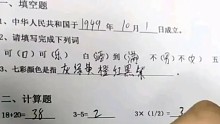 一、填空题
1、中华人民共和国于1949年10月1日成立。
2、请填写完成下列词
可(口)可(乐) 白( )到( ) 不( )不( )
3、七彩颜色是指灰绿黄橙红黑紫
二、计算题
18+20=38 3-5=2 3×(1/2)=